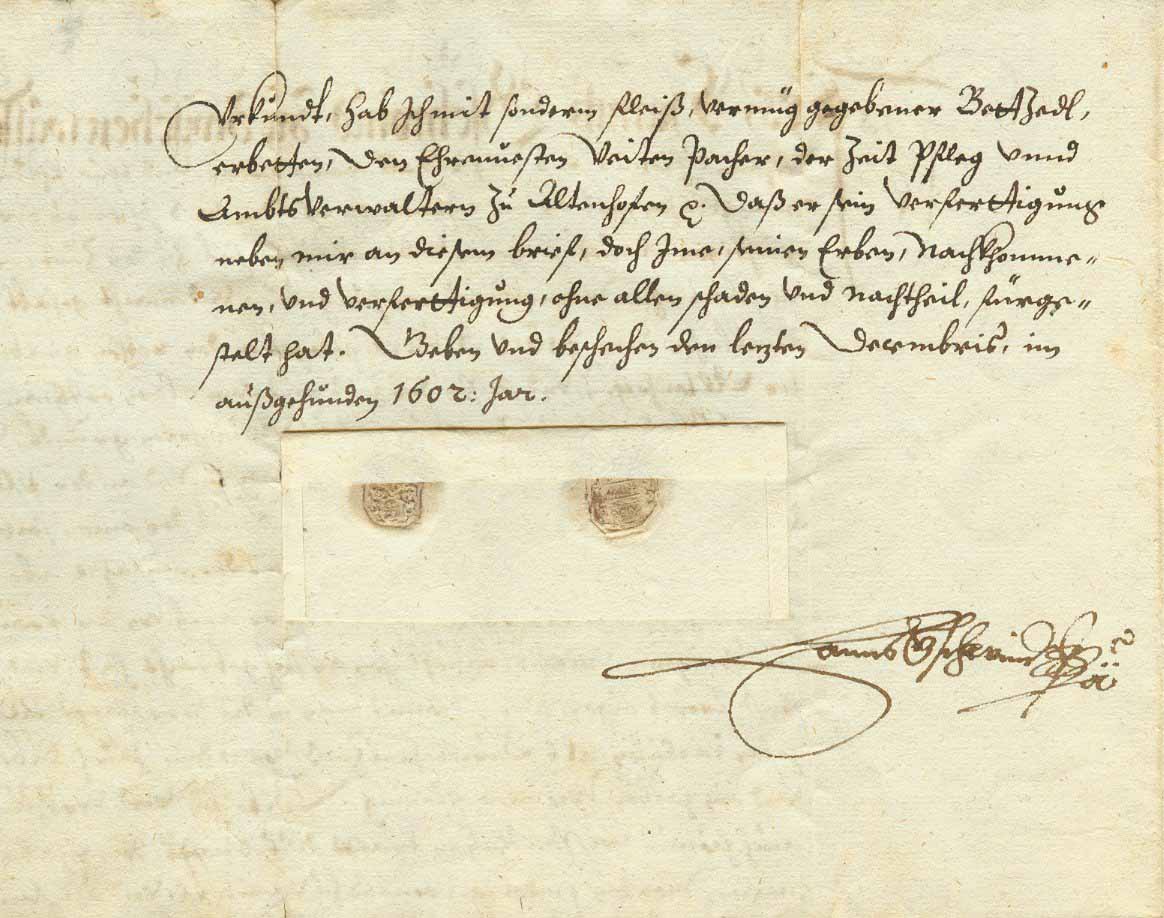 Vrkundt, hab Ich mit sonderm fleiß, vermüg gegebener Bettzedl,
erbetten, den Ehrnuesten Veiten Pacher, der Zeit Pfleg vnnd
Ambtsverwaltern Zu Altenhofen &. Daß er sein verferttigung
neben mir an diesem brief, doch Ime, seinen Erben, Nachkhomme-
nen, vnd verferttigung, ohne allen schaden vnd nachtheil, fürge-
stelt hat. Geben vnd beschechen den letzten Decembris, im
außgehunden 1602: Jar.
Hanns